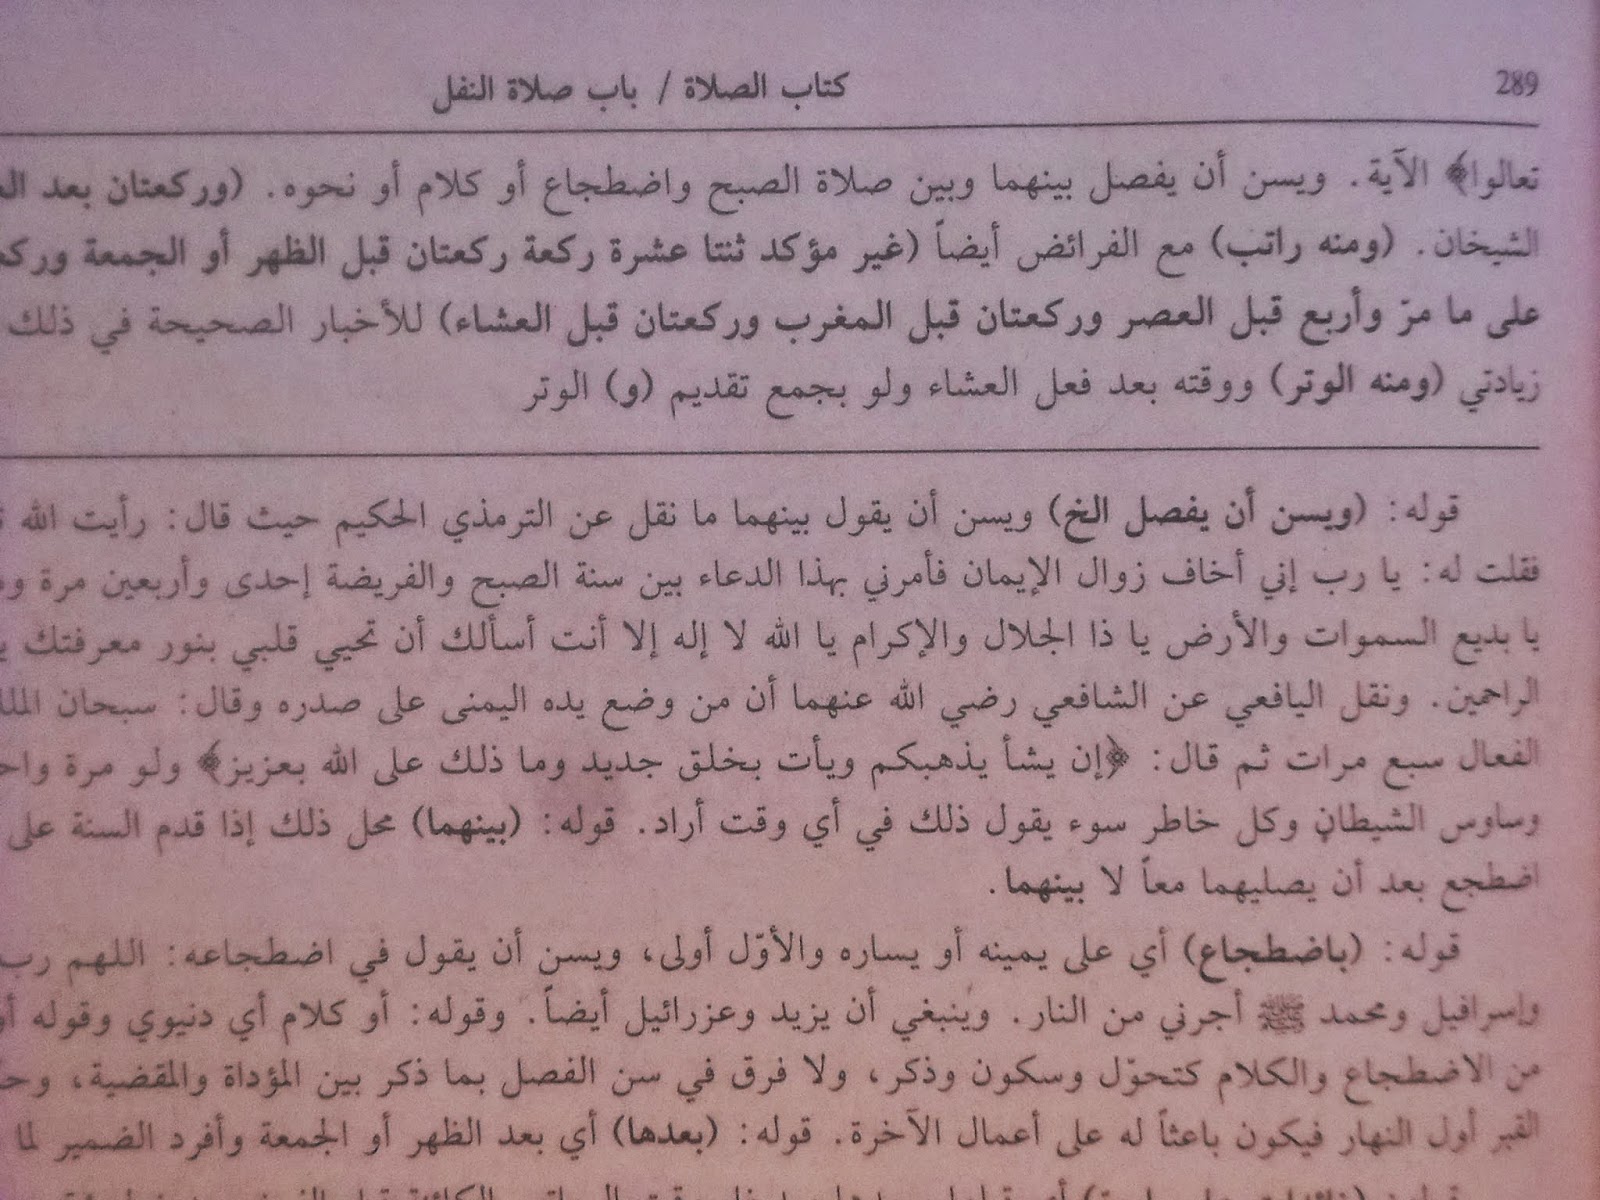 289
كتاب الصلاة / باب صلاة النفل
تعالوا﴾ الآية. ويسن أن يفصل بينهما وبين صلاة الصبح واضطجاع أو كلام أو نحوه. (وركعتان بعد
الشيخان. (ومنه راتب) مع الفرائض أيضاً (غير مؤكد ثنتا عشرة ركعة ركعتان قبل الظهر أو الجمعة
على ما مرّ وأربع قبل العصر وركعتان قبل المغرب وركعتان قبل العشاء) للأخبار الصحيحة في ذلك
زيادتي (ومنه الوتر) ووقته بعد فعل العشاء ولو بجمع تقديم (و) الوتر
قوله: (ويسن أن يفصل الخ) ويسن أن يقول بينهما ما نقل عن الترمذي الحكيم حيث قال: رأيت الله
فقلت له: يا رب إني أخاف زوال الإيمان فأمرني بهذا الدعاء بين سنة الصبح والفريضة إحدى وأربعين مرة
يا بديع السموات والأرض يا ذا الجلال والإكرام يا الله لا إله إلا أنت أسألك أن تحيي قلبي بنور معرفتك
الراحمين. ونقل اليافعي عن الشافعي رضي الله عنهما أن من وضع يده اليمنى على صدره وقال: سبحان
الفعال سبع مرات ثم قال: ﴿إن يشأ يذهبكم ويأت بخلق جديد وما ذلك على الله بعزيز﴾ ولو مرة
وساوس الشيطان وكل خاطر سوء يقول ذلك في أي وقت أراد. قوله: (بينهما) محل ذلك إذا قدم السنة على
اضطجع بعد أن يصليهما معاً لا بينهما.
قوله: (باضطجاع) أي على يمينه أو يساره والأوّل أولى، ويسن أن يقول في اضطجاعه: اللهم رب
وإسرافيل ومحمد ﷺ أجرني من النار. وينبغي أن يزيد وعزرائيل أيضاً. وقوله: أو كلام أي دنيوي وقوله
من الاضطجاع والكلام كتحوّل وسكون وذكر، ولا فرق في سن الفصل بما ذكر بين المؤداة والمقضية،
القبر أول النهار فيكون باعثاً له على أعمال الآخرة. قوله: (بعدها) أي بعد الظهر أو الجمعة وأفرد الضمير لما